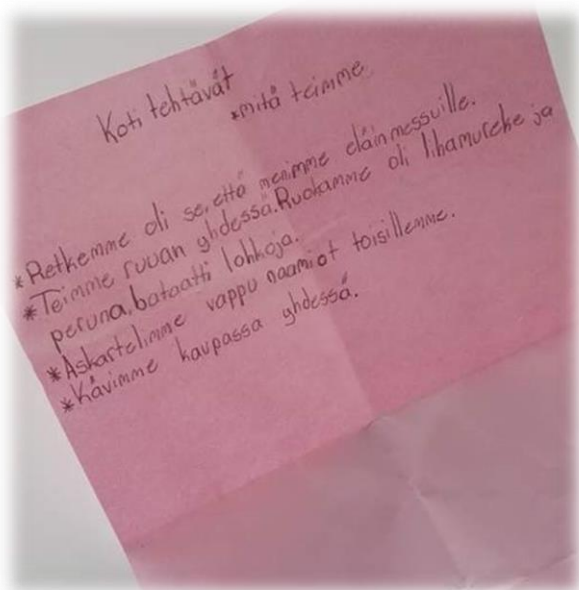 Koti tehtävät
*mitä teimme
*Retkemme oli se, että menimme eläinmessuille.
*Teimme ruuan yhdessä. Ruokamme oli lihamureke ja
peruna, bataatti lohkoja.
*Askartelimme vappu naamiot toisillemme.
*Kävimme kaupassa yhdessä.